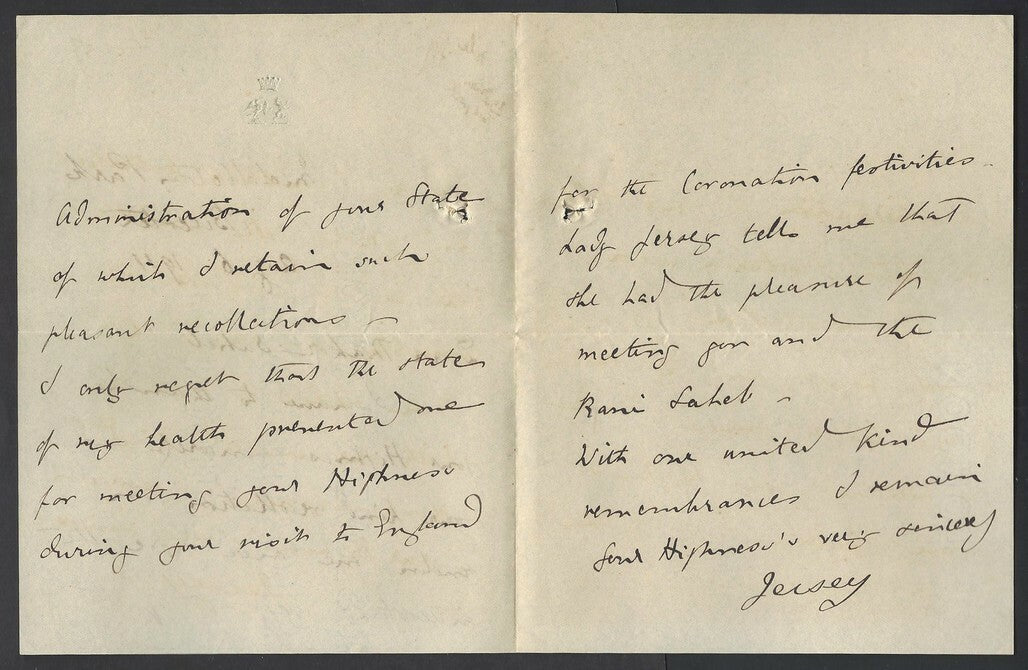 Administration of your State
of which I retain such
pleasant recollections –
I only regret that the state
of my health prevented me
for meeting your Highness
during your visit to England
for the Coronation festivities –
Lady Jersey tells me that
she had the pleasure of
meeting you and the
Rani Saheb –
With our united kind
remembrances I remain
Your Highness's very sincerely
Jersey